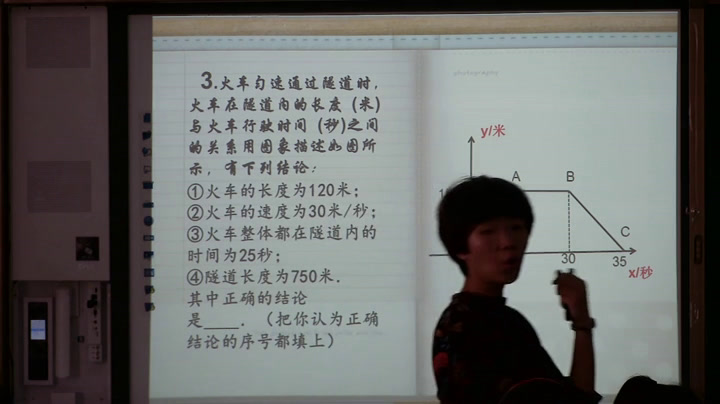 photography
3.火车匀速通过隧道时，
火车在隧道内的长度（米）
与火车行驶时间（秒)之间
的关系用图象描述如图所
示，有下列结论：
①火车的长度为120米；
②火车的速度为30米/秒；
③火车整体都在隧道内的
时间为25秒；
④隧道长度为750米．
其中正确的结论
是____．（把你认为正确
结论的序号都填上）
y/米
A
B
C
30
35
x/秒